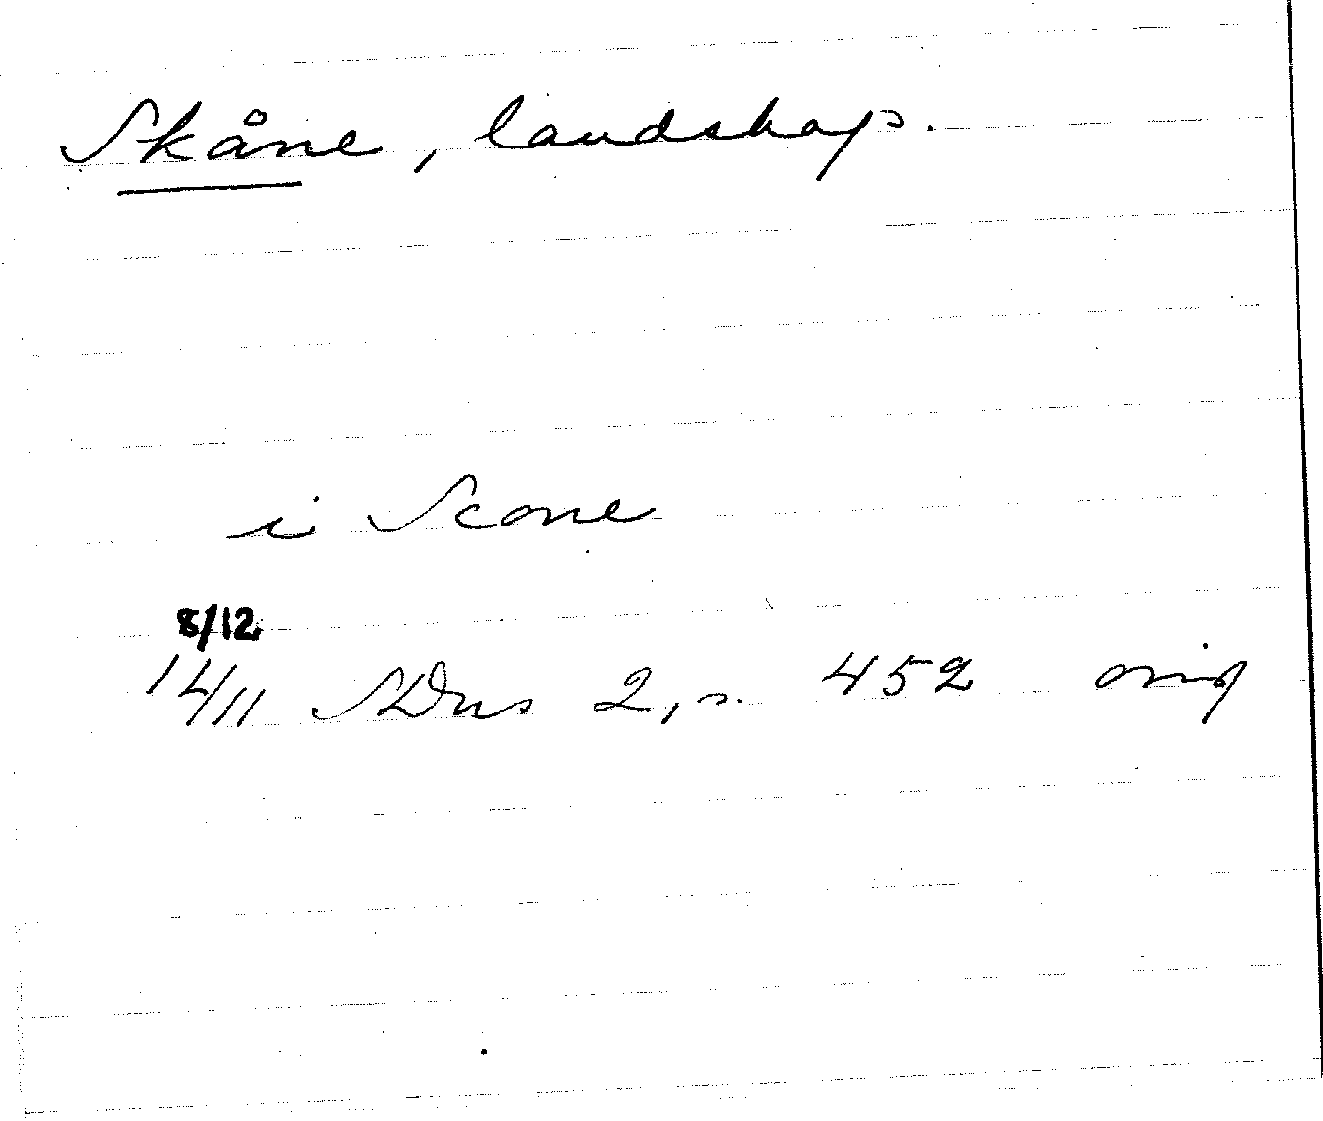 Skåne, landskap.
i Scone
8/12
14/11 SDns 2, s. 452 orig